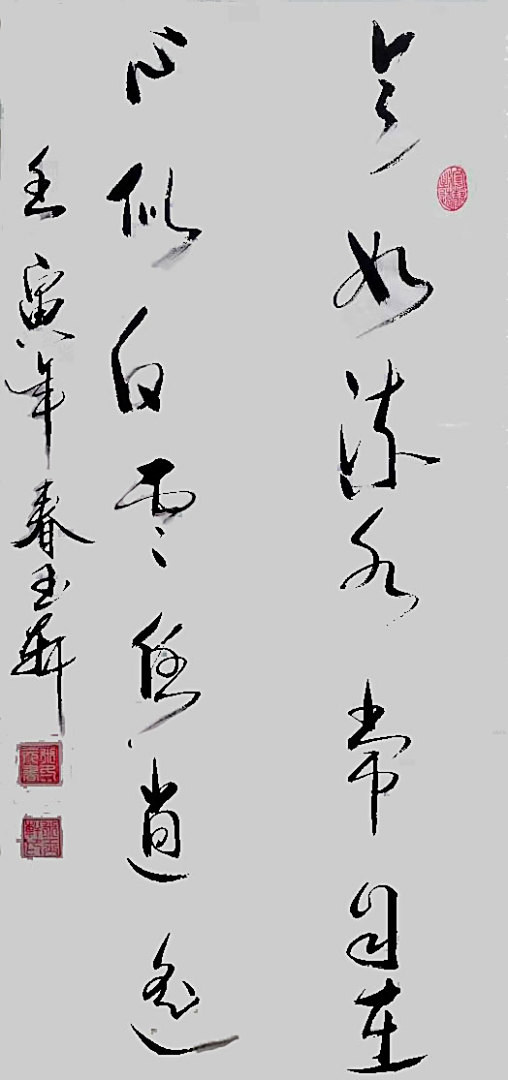 如流水常自在
心似白雲逍遥
壬寅年春玉軒